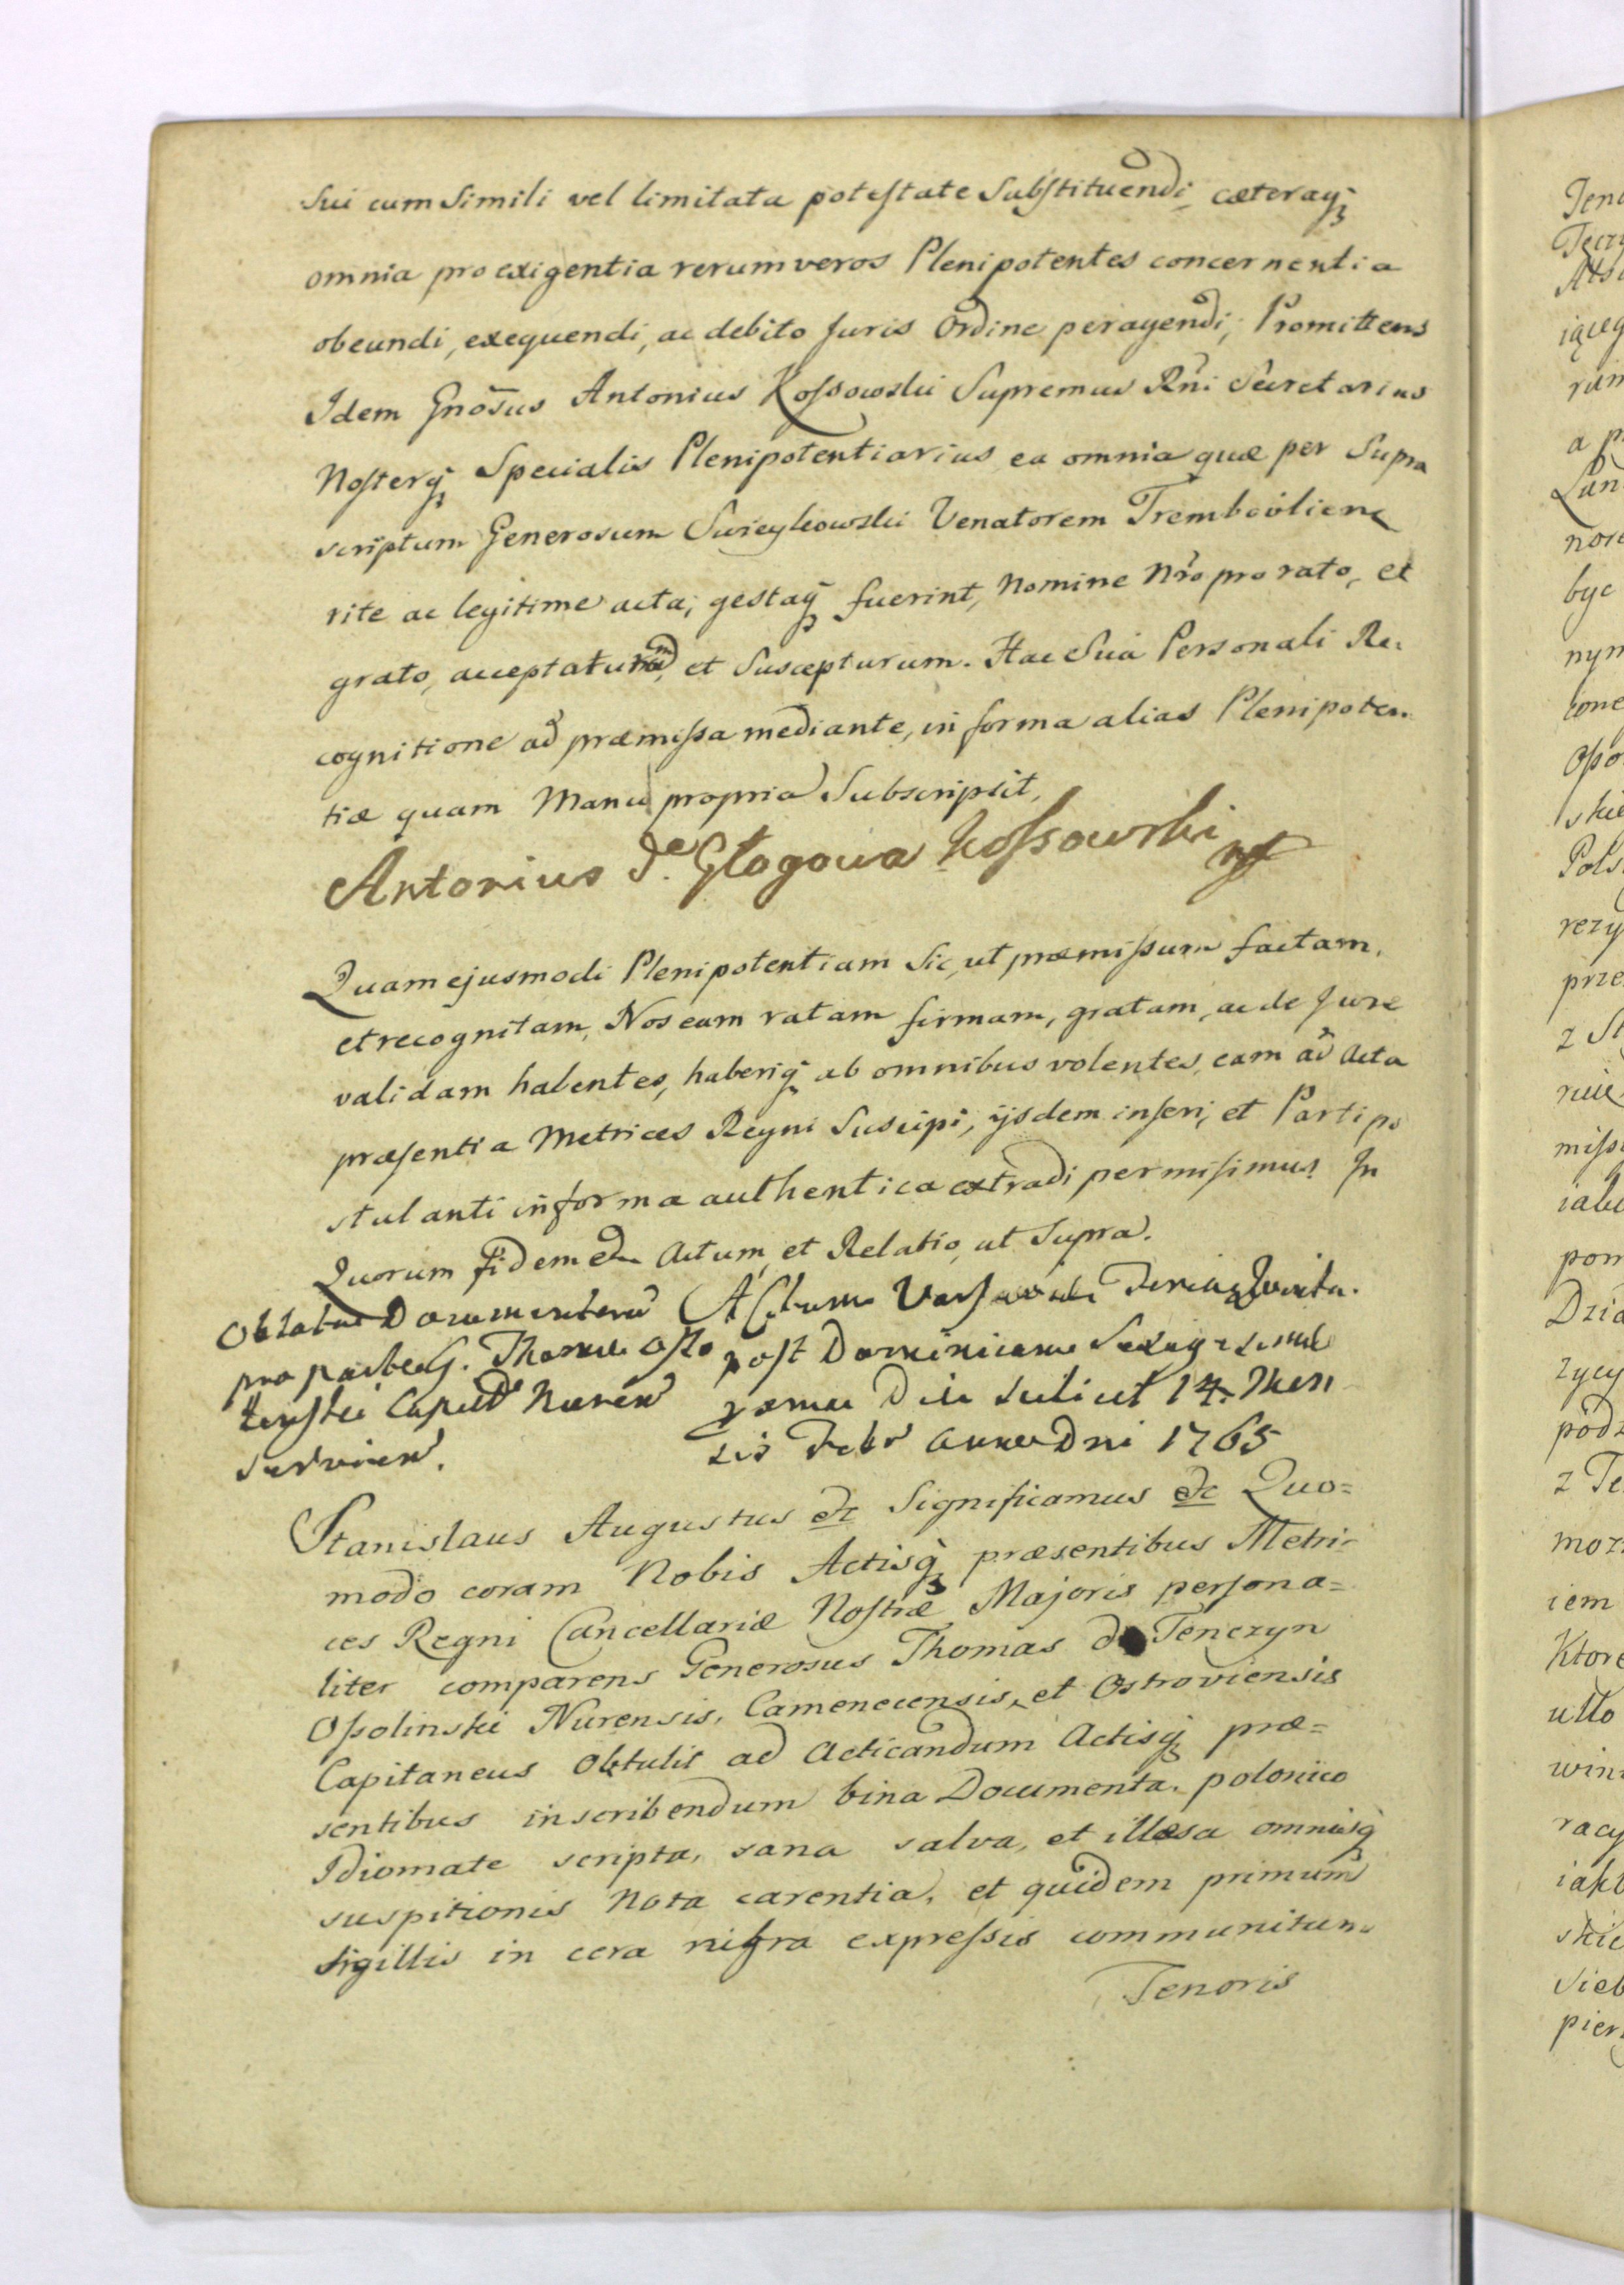 sui cum Simili vel limitata potestate Substituendi, cæteraq;
omnia pro exigentia rerum veros Plenipotentes concernentia
obeundi, exequendi, ac debito Juris Ordine peragendi; Promittens
Idem Gnosus Antonius Kossowski Supremus Rni Secretarius
Nosterq; Specialis Plenipotentiarius ea omnia quæ per Supra
scriptum Generosum Venatorem
rite ac legitime acta, gestaq; fuerint, Nomine Nro pro rato, et
grato, et Suscepturum. Hac Sua Personali Re-
cognitione ad præmissa mediante, in forma alias Plenipoten-
tiæ quam Manu propria Subscripsit.
Antonius de Głogowa Kossowski mp
Quam ejusmodi Plenipotentiam Sic, ut præmissum factam,
et recognitam, Nos eam ratam firmam, gratam, ac de Jure
validam habentes, haberiq; ab omnibus volentes, eam ad Acta
præsentia Metrices Regni Suscipi, ijsdem inseri, et Parti po
stulanti in forma authentica extradi permisimus. In
Quorum fidem etc Actum, et Relatio, ut Supra.
Oblatae Documentorum
pro parte G. Thomae Osso
linskii Capit. Nuren
servien.
Actum Varsaviae Feria Quinta
post Dominicam Sexagesimae
proma Die scilicet 14. Men
sis Febr Anno Dni 1765
Stanislaus Augustus etc Significamus etc Quo=
modo coram Nobis Actisq; præsentibus Metri-
ces Regni Cancellariæ Nostræ Majoris persona=
liter comparens Generosus Thomas de Tenczyn
Ossolinski Nurensis, Camenecensis, et Ostroviensis
Capitaneus obtulit ad Acticandum Actisq; præ=
sentibus inscribendum bina Documenta, polonico
Idiomate scripta, sana salva, et illæsa omniaq;
suspitionis Nota carentia, et quidem primum
sigillis in cera nigra expressis communitum
Tenoris